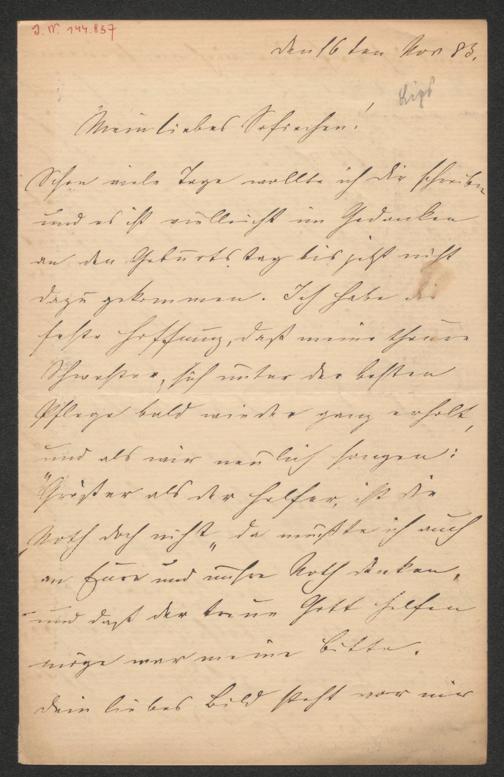 J. N. 144.857
den 16ten Nov 83.
Mein liebes Sofiechen!
Schon viele Tage wollte ich Dir schreiben
und es ist vielleicht im Gedanken
an den Geburtstag bis jetzt nicht
dazu gekommen. Ich habe die
feste Hoffnung, daß meine theure
Schwester, sich unter der besten
Pflege bald wieder ganz erholt,
und als wir neulich sangen:
"Größer als der Helfer, ist die
Noth doch nicht" da mußte ich auch
an Eure und unsre Noth denken,
und daß der treue Gott helfen
möge war meine Bitte.
Dein liebes Bild steht vor mir